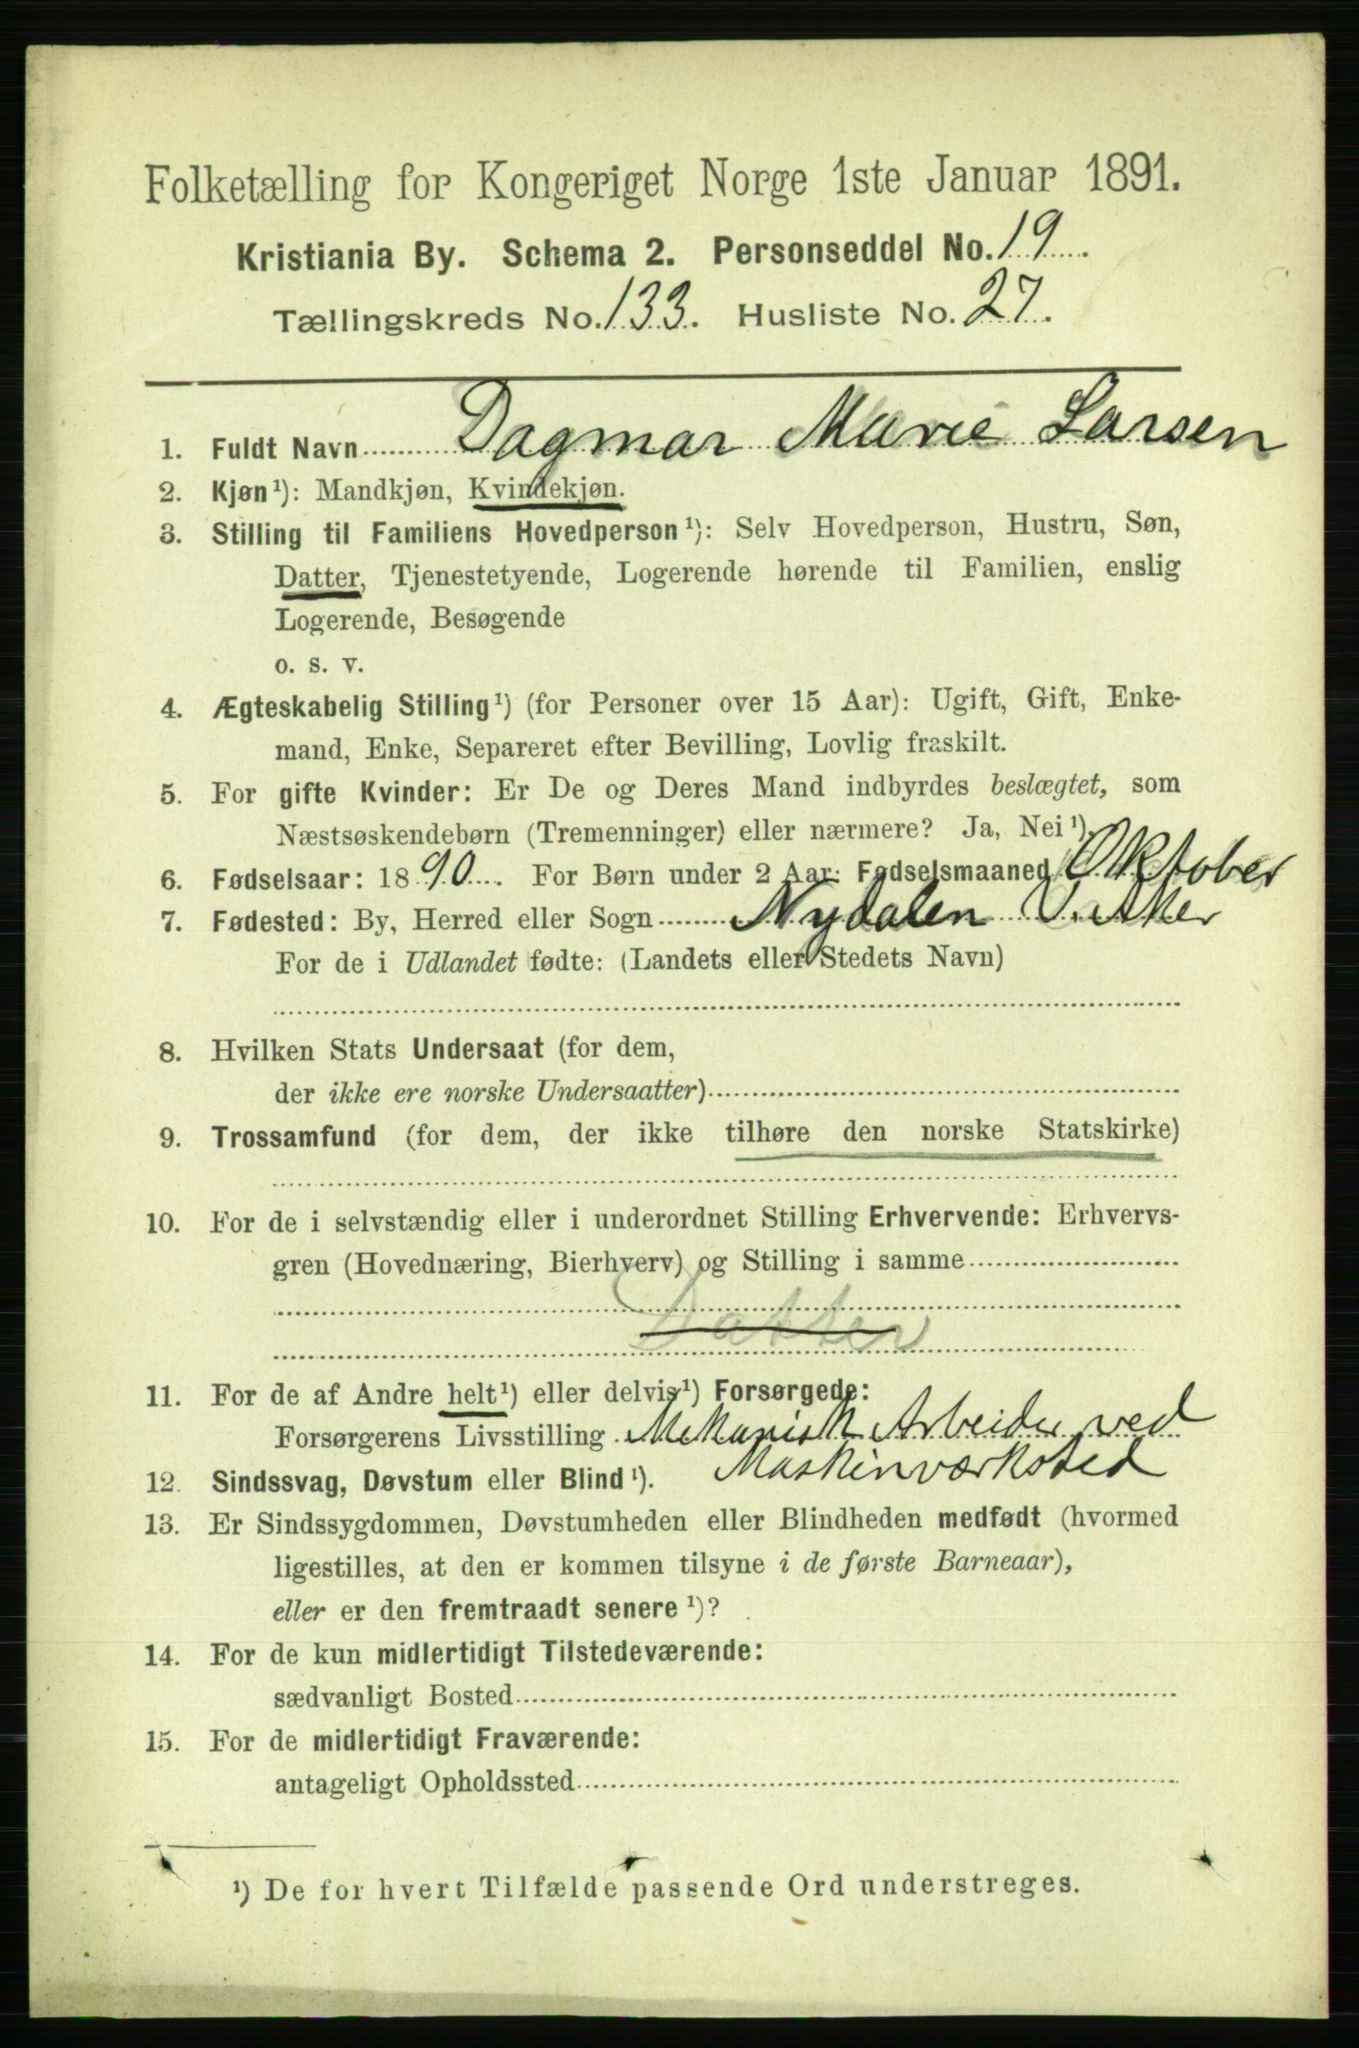 Folketælling for Kongeriget Norge 1ste Januar 1891.
Kristiania By. Schema 2. Personseddel No. 19.
Tællingskreds No. 133. Husliste No. 27.
1. Fuldt Navn Dagmar Marie Larsen
2. Kjøn¹): Mandkjøn, Kvindekjøn.
3. Stilling til Familiens Hovedperson¹): Selv Hovedperson, Hustru, Søn,
Datter, Tjenestetyende, Logerende hørende til Familien, enslig
Logerende, Besøgende
o. s. v.
4. Ægteskabelig Stilling¹) (for Personer over 15 Aar): Ugift, Gift, Enke-
mand, Enke, Separeret efter Bevilling, Lovlig fraskilt.
5. For gifte Kvinder: Er De og Deres Mand indbyrdes beslægtet, som
Næstsøskendebørn (Tremenninger) eller nærmere? Ja, Nei¹).
6. Fødselsaar: 1890. For Børn under 2 Aar: Fødselsmaaned Oktober
7. Fødested: By, Herred eller Sogn Nydalen V. Aker
For de i Udlandet fødte: (Landets eller Stedets Navn)
8. Hvilken Stats Undersaat (for dem,
der ikke ere norske Undersaatter)
9. Trossamfund (for dem, der ikke tilhøre den norske Statskirke)
10. For de i selvstændig eller i underordnet Stilling Erhvervende: Erhvervs-
gren (Hovednæring, Bierhverv) og Stilling i samme
Datter
11. For de af Andre helt¹) eller delvis¹) Forsørgede:
Forsørgerens Livsstilling Mekanisk Arbeider ved
Maskinværksted
12. Sindssvag, Døvstum eller Blind¹).
13. Er Sindssygdommen, Døvstumheden eller Blindheden medfødt (hvormed
ligestilles, at den er kommen tilsyne i de første Barneaar),
eller er den fremtraadt senere¹)?
14. For de kun midlertidigt Tilstedeværende:
sædvanligt Bosted
15. For de midlertidigt Fraværende:
antageligt Opholdssted
¹) De for hvert Tilfælde passende Ord understreges.